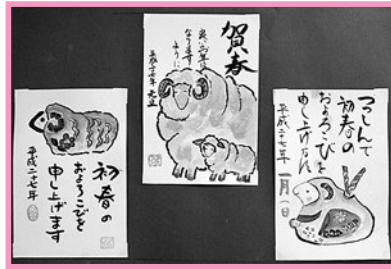 賀春
良い年に
なります
ように
平成二十七年 元旦
初春の
およろこびを
申し上げます
平成二十七年
つつしんで
初春の
およろこびを
申し上げます
平成二十七年 一月一日